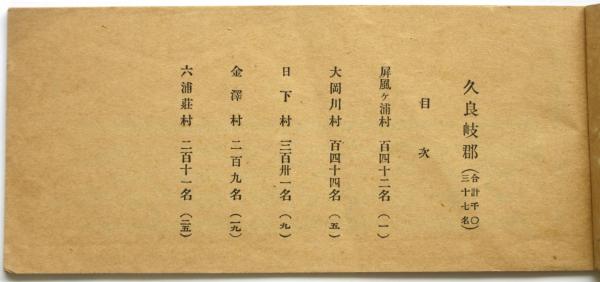 久良岐郡（合計千〇三十七名）
目次
屏風ヶ浦村 百四十二名（一）
大岡川村 百四十四名（五）
日下村 三百卅一名（九）
金澤村 二百九名（一九）
六浦荘村 二百十一名（二五）